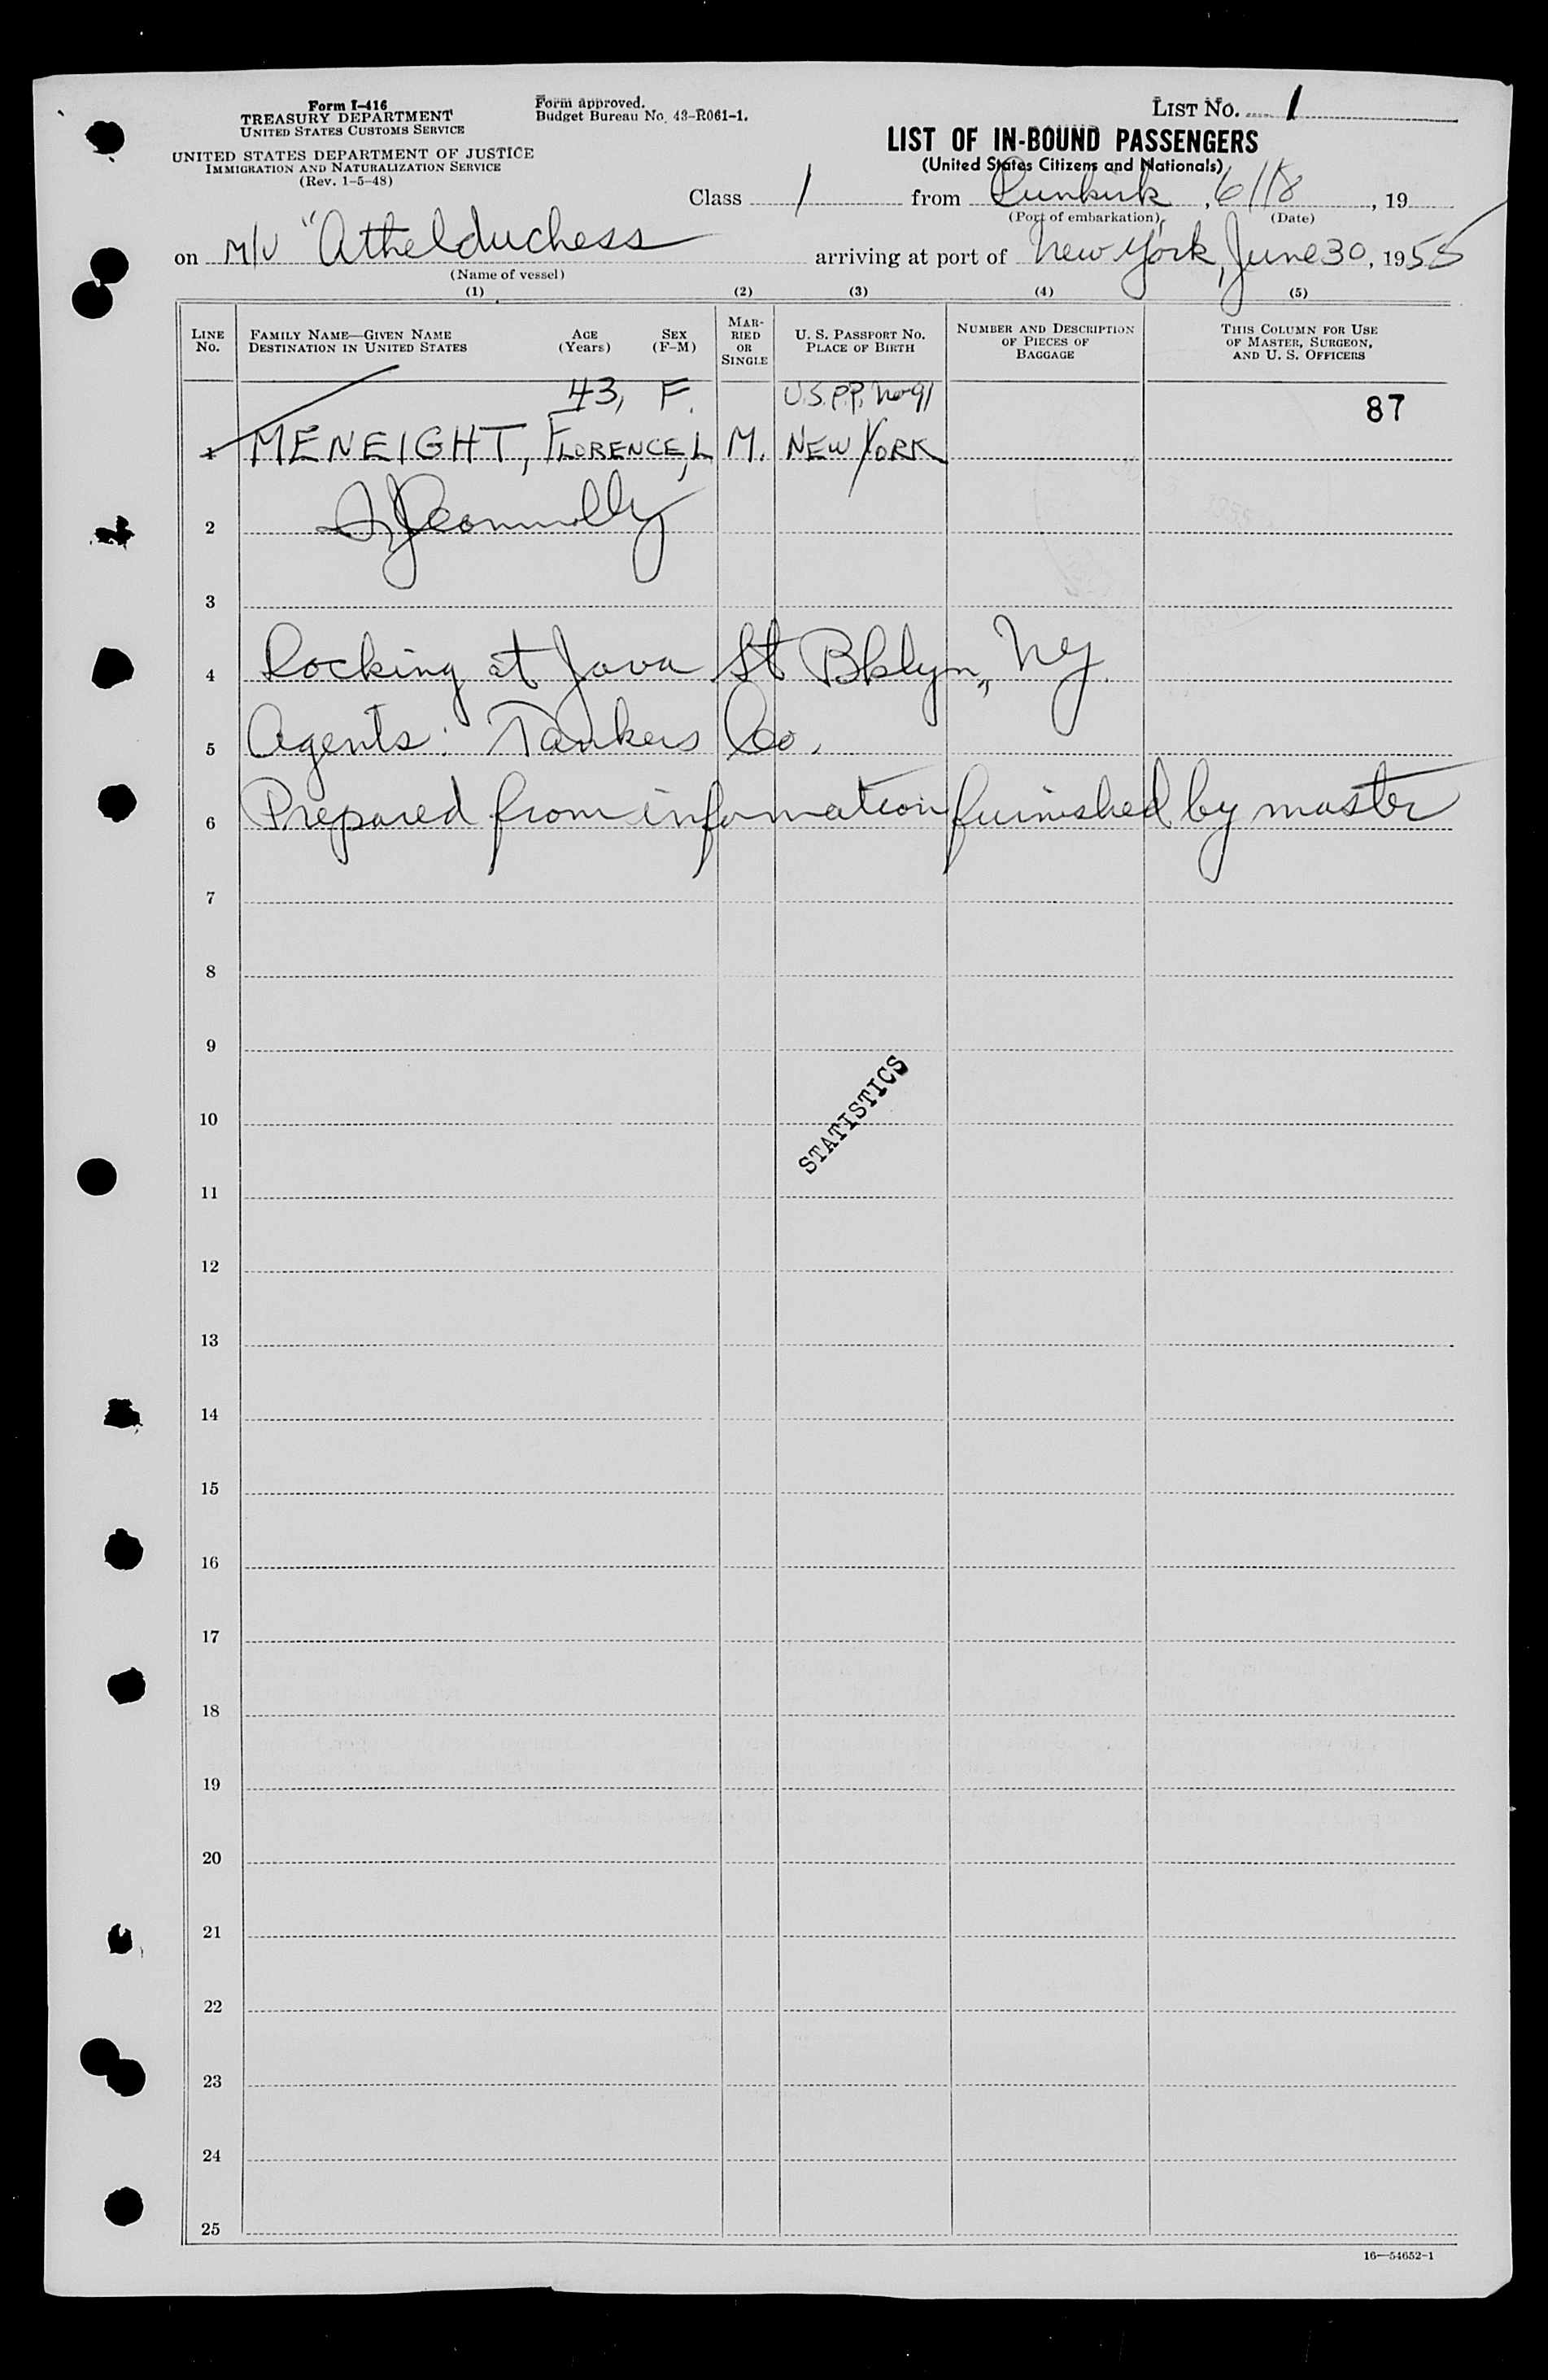 Form I-416
TREASURY DEPARTMENT
UNITED STATES CUSTOMS SERVICE
UNITED STATES DEPARTMENT OF JUSTICE
IMMIGRATION AND NATURALIZATION SERVICE
(Rev. 1-5-48)
Form approved.
Budget Bureau No. 43-R061-1.
LIST No. 1
LIST OF IN-BOUND PASSENGERS
(United States Citizens and Nationals)
Class 1 from Dunkirk, 6/18, 19
(Port of embarkation) (Date)
on M/V "Athelduchess arriving at port of New York, June 30, 1955
(Name of vessel)
(1) (2) (3) (4) (5)
LINE No.
FAMILY NAME—GIVEN NAME
DESTINATION IN UNITED STATES
AGE (Years)
SEX (F-M)
MAR-RIED OR SINGLE
U. S. PASSPORT NO.
PLACE OF BIRTH
NUMBER AND DESCRIPTION OF PIECES OF BAGGAGE
THIS COLUMN FOR USE OF MASTER, SURGEON, AND U. S. OFFICERS
43, F. U.S.P.P. No 91 87
1 MENEIGHT, FLORENCE, L M. NEW YORK
2 Connolly
3
4 Docking at Java St Bklyn, NY.
5 Agents: Tankers Co.
6 Prepared from information furnished by master
7
8
9
STATISTICS
10
11
12
13
14
15
16
17
18
19
20
21
22
23
24
25
16—54652-1